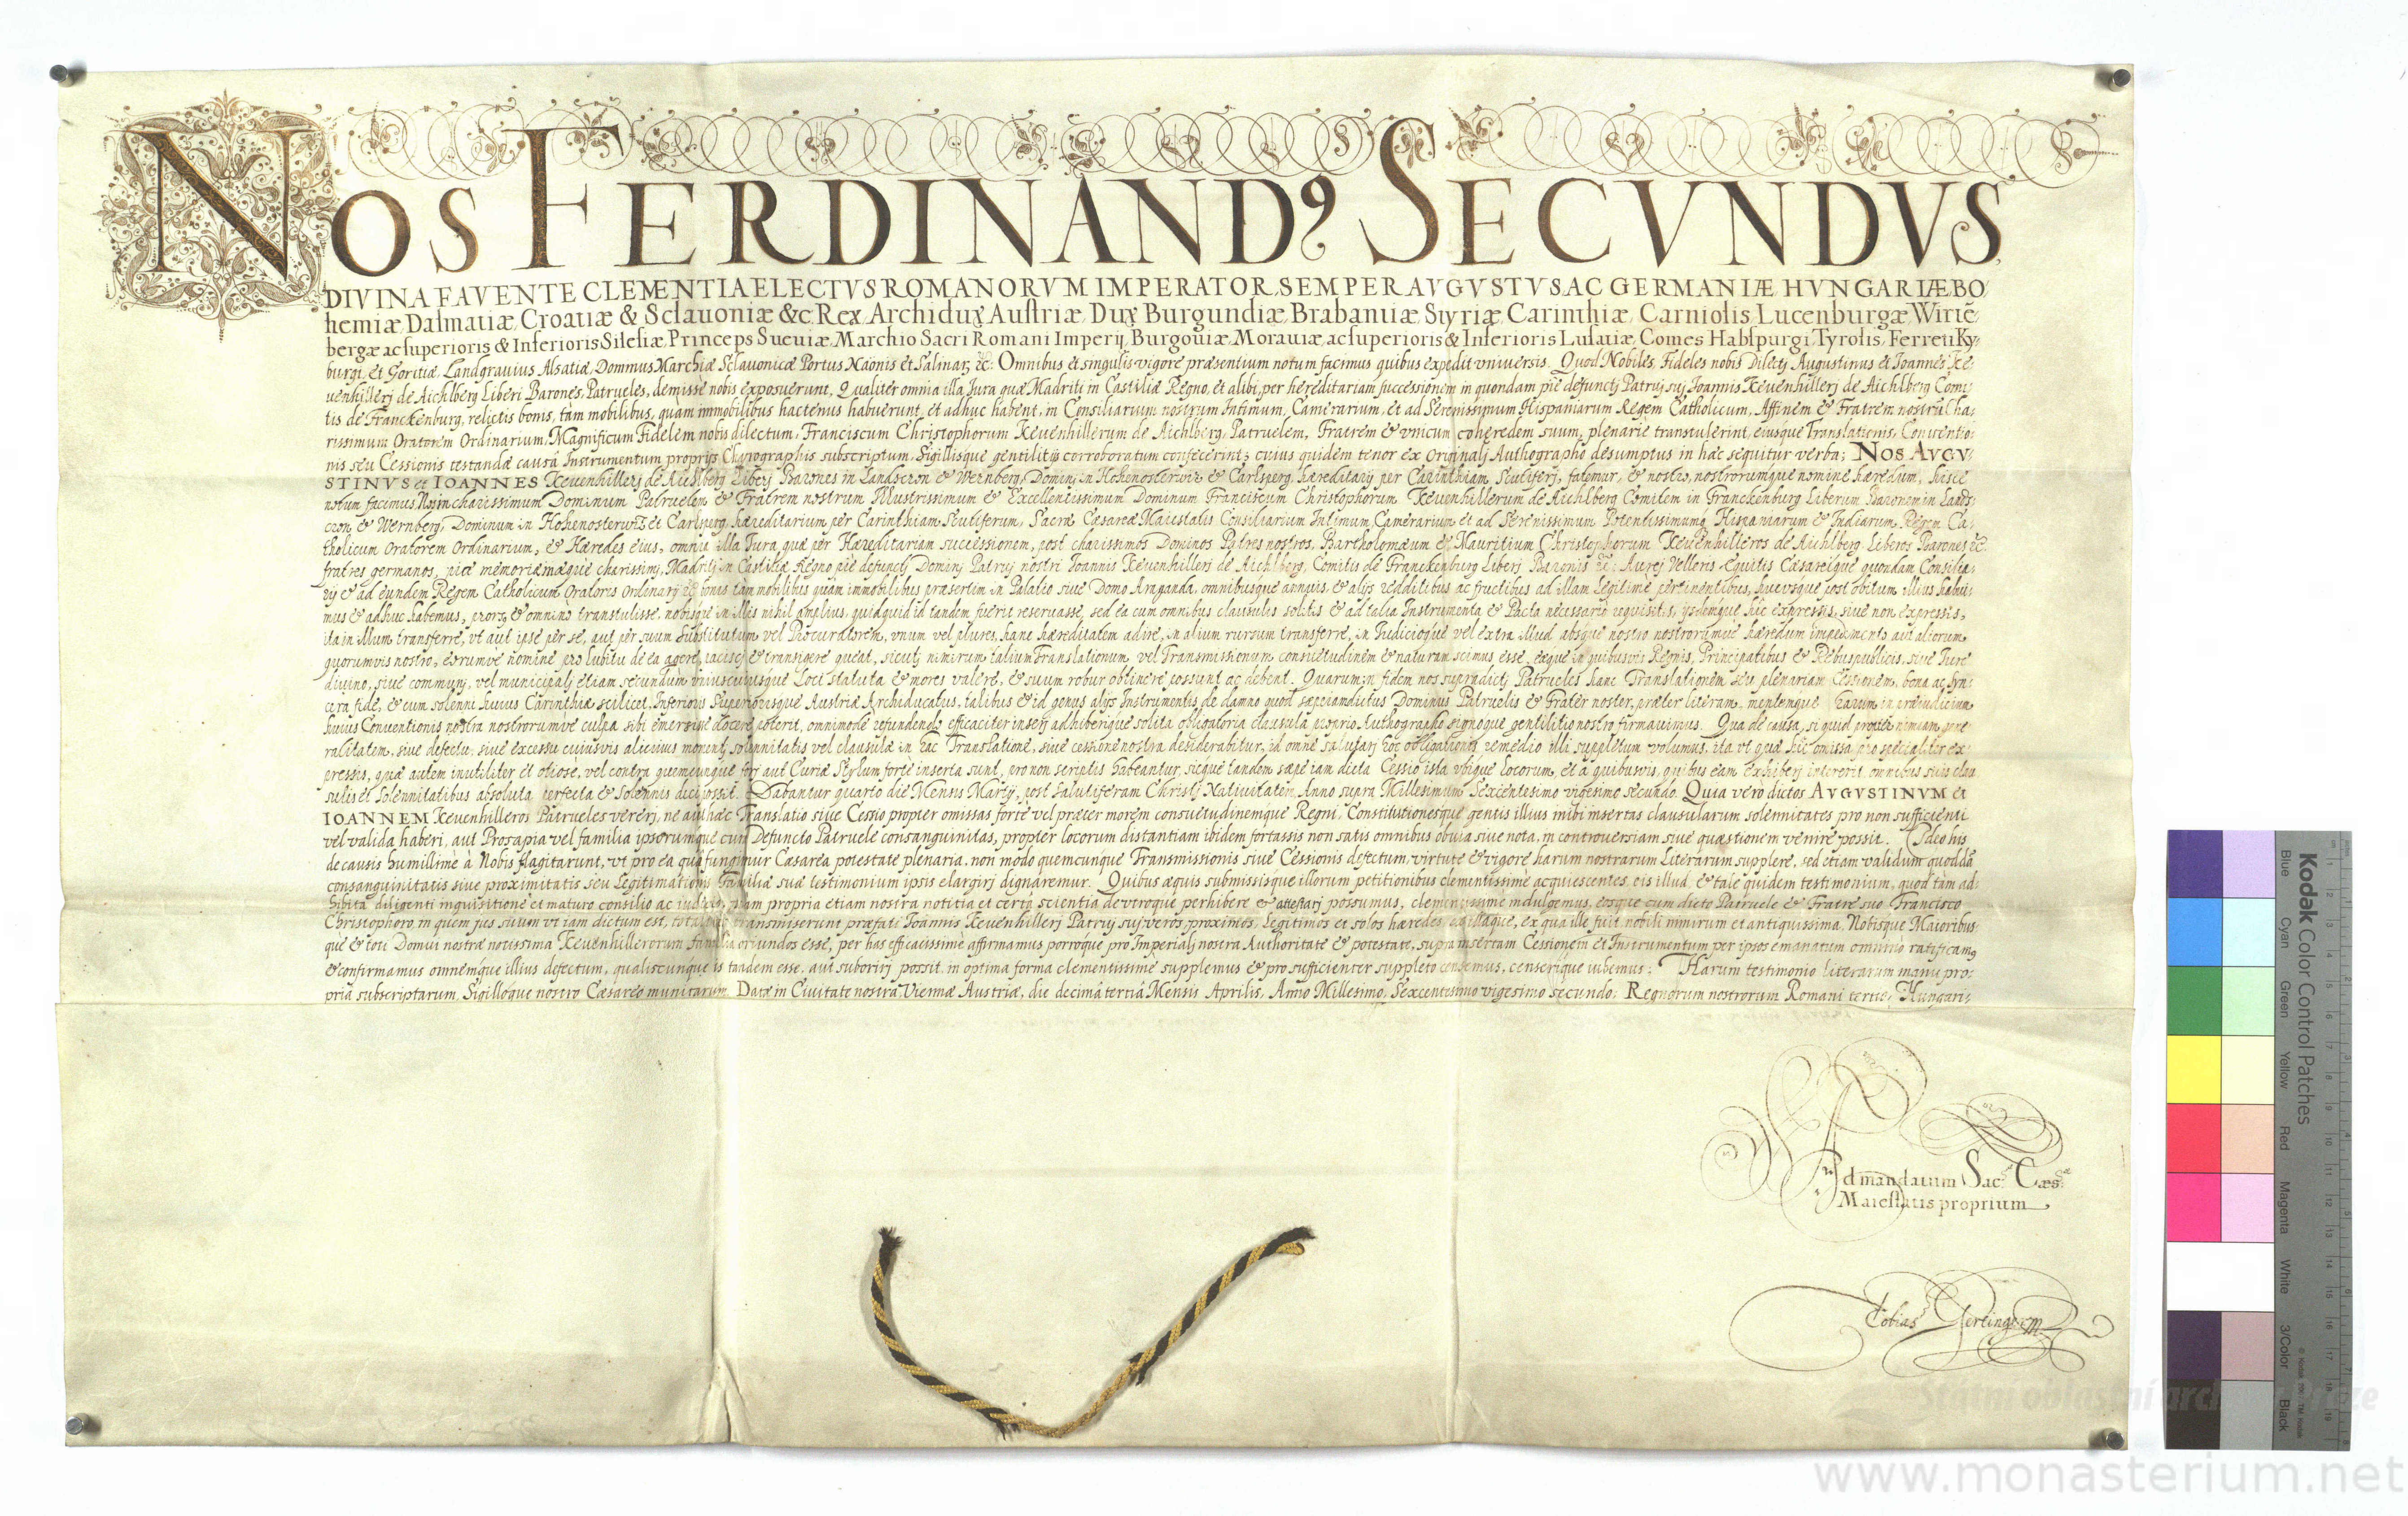 NOS FERDINANDꝰ SECVNDVS,
DIVINA FAVENTE CLEMENTIA ELECTVS ROMANORVM IMPERATOR, SEMPER AVGVSTVS, AC GERMANIÆ, HVNGARIÆ, BO
hemiæ, Dalmatiæ, Croatiæ & Sclauoniæ &c. Rex, Archidux Austriæ, Dux Burgundiæ, Brabantiæ, Styriæ, Carinthiæ, Carniolis, Lucenburgæ, Wirtē,
bergæ ac superioris & Inferioris Silesiæ, Princeps Sueuiæ, Marchio Sacri Romani Imperij, Burgouiæ, Morauiæ, ac superioris & Inferioris Lusatiæ, Comes Habspurgi, Tyrolis, Ferreti Ky,
burgi, et Goritiæ, Landgrauius Alsatiæ, Dominus Marchiæ Sclauonicæ Portus Naonis et Salinarū &c: Omnibus et singulis vigore præsentium notum facimus quibus expedit vniuersis. Quod Nobiles, Fideles nobis Dilecti Augustinus et Joannes Ke,
uenhillerj de Aichlberg Liberi Barones, Patrueles, demisse nobis exposuerunt, Qualiter omnia illa Jura quæ Madriti in Castiliæ Regno, et alibi, per hæreditariam successionem in quondam piè defunctj Patruj suj Joannis Keuenhillerj de Aichlberg Comi,
tis de Franckenburg, relictis bonis, tàm mobilibus, quam immobilibus hactenus habuerunt, et adhuc habent, in Consiliarium nostrum Intimum, Camerarium, et ad Serenissimum Hispaniarum Regem Catholicum, Affinem & Fratrem nostrū Cha,
rissimum Oratorem Ordinarium, Magnificum Fidelem nobis dilectum, Franciscum Christophorum Keuenhillerum de Aichlberg, Patruelem, Fratrem & vnicum coheredem suum, plenariè transtulerint, eiusque Translationis, Conuentio,
nis seu Cessionis testandæ causâ Instrumentum proprijs Chyrographis subscriptum, Sigillisque gentilitijs corroboratum confecerint; cuius quidem tenor ex Originalj Authographo desumptus in hæc sequitur verba; NOS AVGV,
STINVS et IOANNES Keuenhillerj de Aichlberg Liberj Barones in Landscron & Wernberg, Dominj in Hohenosterwitz & Carlsperg, hæreditarij per Carinthiam Scutiferj, fatemur, & nostro, nostrorumque nomine hæredum, hisce
notum facimus, Nos in charissimum Dominum Patruelem & Fratrem nostrum Illustrissimum & Excellentissimum Dominum Franciscum Christophorum Keuenhillerum de Aichlberg Comitem in Franckenburg Liberum Baronem in Lands,
cron, & Wernberg, Dominum in Hohenosterwitz et Carlsperg, hæreditarium per Carinthiam Scutiferum, Sacræ Cæsareæ Maiestatis Consiliarium Intimum, Camerarium et ad Serenissimum Potentissimumq̃ Hispaniarum & Indiarum Regem Ca,
tholicum Oratorem Ordinarium, & Hæredes eius, omnia illa Jura, quæ per Hæreditariam successionem, post charissimos Dominos Patres nostros, Bartholomæum & Mauritium Christophorum Keuenhilleros de Aichlberg Liberos Barones &c.
fratres germanos, piæ memoriæ méque charissimj, Madritj in Castiliæ Regno piè defunctj Dominj Patruj nostri Joannis Keuenhillerj de Aichlberg, Comitis de Franckenburg Liberj Baronis &c: Aurej Velleris Equitis Cæsareique quondam Consilia,
rij & ad eundem Regem Catholicum Oratoris Ordinarij &c: bonis tàm mobilibus quàm immobilibus præsertim in Palatio siue Domo Araganda, omnibusque annuis, & alijs redditibus ac fructibus ad illam Legitimè pertinentibus, hucusque post obitum illius habui,
mus & adhuc habemus, prorsꝰ & omninò transtulisse, nobisque in illis nihil amplius, quidquid id tandem fuerit reseruasse, sed ea cum omnibus clausulis solitis & ad talia Instrumenta & Pacta necessariò requisitis, ijsdemque hic expressis, siue non expressis,
ita in illum transferre, vt aut ipse per se, aut per suum Substitutum vel Procuratorem, vnum vel plures, hanc hæreditatem adire, in alium rursum transferre, in Judicioque vel extra illud absque nostro nostrorumque hæredum impedimento aut aliorum
quorumuis nostro, eorumue nomine pro lubitu de ea agere, paciscj & transigere queat, sicutj nimirum talium Translationum vel Transmissionum consuetudinem & naturam scimus esse, eáque in quibusuis Regnis, Principatibus & Rebuspublicis, siue Jure
diuino, siue communj, vel municipalj etiam secundum vniuscuiusque Loci statuta & mores valere, & suum robur obtinere possunt ac debent. Quarum in fidem nos supradictj Patrueles hanc Translationem seu plenariam Cessionem, bona ac syn,
cera fide, & cum solenni huius Carinthiæ scilicet, Inferioris Superiorisque Austriæ Archiducatus, talibus & id genus alijs Instrumentis de damno quod sæpiamdictus Dominus Patruelis & Frater noster, præter literam, mentemque harum in præiudicium
huius Conuentionis nostra nostrorumue culpa sibi emersisse docere poterit, omnimodè refundendo efficaciter inserj adhiberique solita obligatoria clausula proprio Authographo signoque gentilitio nostro firmauimus. Qua de causa, si quid propter nimiam gene
ralitatem, siue defectu, siue excessu cuiusuis alicuius momentj solennitatis vel clausulæ in hac Translatione, siue cessione nostra desiderabitur, id omne salutarj hoc obligationis remedio illi suppletum volumus, ita vt quæ hic omissa pro specialiter ex,
pressis, quæ autem inutiliter et otiosè, vel contra quemcunque forj aut Curiæ Stylum forte inserta sunt, pro non scriptis habeantur, sicque tandem sæpe iam dicta Cessio ista vbique Locorum, et à quibusuis, quibus eam exhiberj intererit, omnibus suis clau
sulis et solennitatibus absoluta perfecta & solennis dici possit. Dabantur quarto die Mensis Martij, post salutiferam Christj Natiuitatem, Anno supra Millesimum Sexcentesimo vigesimo secundo. Quia verò dictos AVGVSTINVM et
IOANNEM Keuenhilleros Patrueles vererj, ne aut hæc Translatio siue Cessio propter omissas fortè vel præter morem consuetudinemque Regni, Constitutionesque gentis illius inibi insertas clausularum solennitates pro non sufficienti
vel valida haberi, aut Prosapia vel familia ipsorumque cum Defuncto Patruele consanguinitas, propter locorum distantiam ibidem fortassis non satis omnibus obuia siue nota, in controuersiam siue quæstionem venire possit. Ideo his
de causis humillimè à Nobis flagitarunt, vt pro ea qua fungimur Cæsarea potestate plenaria, non modo quemcunque Transmissionis siue Cessionis defectum, virtute & vigore harum nostrarum Literarum supplere, sed etiam validum quoddā
consanguinitatis siue proximitatis seu Legitimationis Familiæ suæ testimonium ipsis elargirj dignaremur. Quibus æquis submissisque illorum petitionibus clementissimè acquiescentes, eis illud, & tale quidem testimonium, quod tàm ad,
hibita diligenti inquisitione et maturo consilio ac iudicio, quam propria etiam nostra notitia et certa scientia de vtroque perhibere & attestarj possumus, clementissimè indulgemus, eosque cum dicto Patruele & Fratre suo Francisco
Christophoro, in quem jus suum vt iam dictum est, transmiserunt præfati Joannis Keuenhillerj Patruj suj veros, proximos, Legitimos et solos hæredes, ex ea, ex qua ille fuit, nobili nimirum et antiquissima, Nobisque Maioribus,
què & toti Domui nostræ notissima Keuenhillerorum familia oriundos esse, per has efficacissimè affirmamus, porroque pro Imperialj nostra Authoritate & potestate, supra insertam Cessionem et Instrumentum per ipsos emanatum omnino ratificamꝰ
& confirmamus omnemque illius defectum, qualiscunque is tandem esse, aut suborirj possit, in optima forma clementissimè supplemus & pro sufficienter suppleto censemus, censerique iubemus: Harum testimonio literarum manu pro,
pria subscriptarum, Sigilloque nostro Cæsareo munitarum. Datæ in Ciuitate nostra Viennæ Austriæ, die decimâ tertiâ Mensis Aprilis, Anno Millesimo, Sexcentesimo vigesimo secundo, Regnorum nostrorum Romani tertio, Hungari,
Ad mandatum Sac: Cæs:
Maiestatis proprium
Tobias Gertinger
Kodak Color Control Patches
Blue Cyan Green Yellow Red Magenta White 3/Color Black
Státní oblastní archiv v Praze
www.monasterium.net